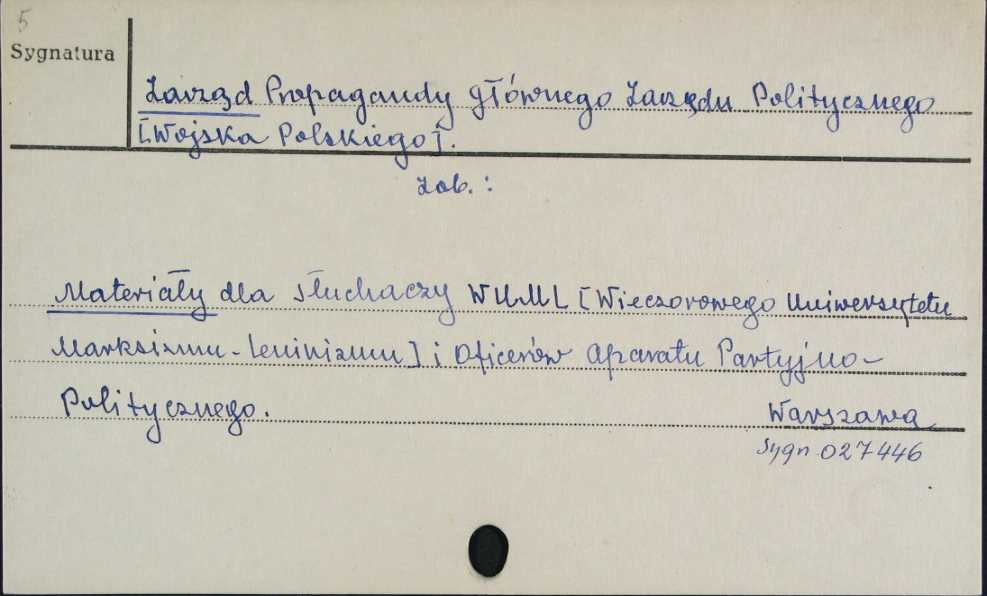 5
Sygnatura
Zarząd Propagandy Głównego Zarządu Politycznego
[Wojska Polskiego].
Zob. :
Materiały dla słuchaczy WUML [Wieczorowego Uniwersytetu
Marksizmu-Leninizmu] i Oficerów Aparatu Partyjno-
Politycznego.
Warszawa
Sygn 027446